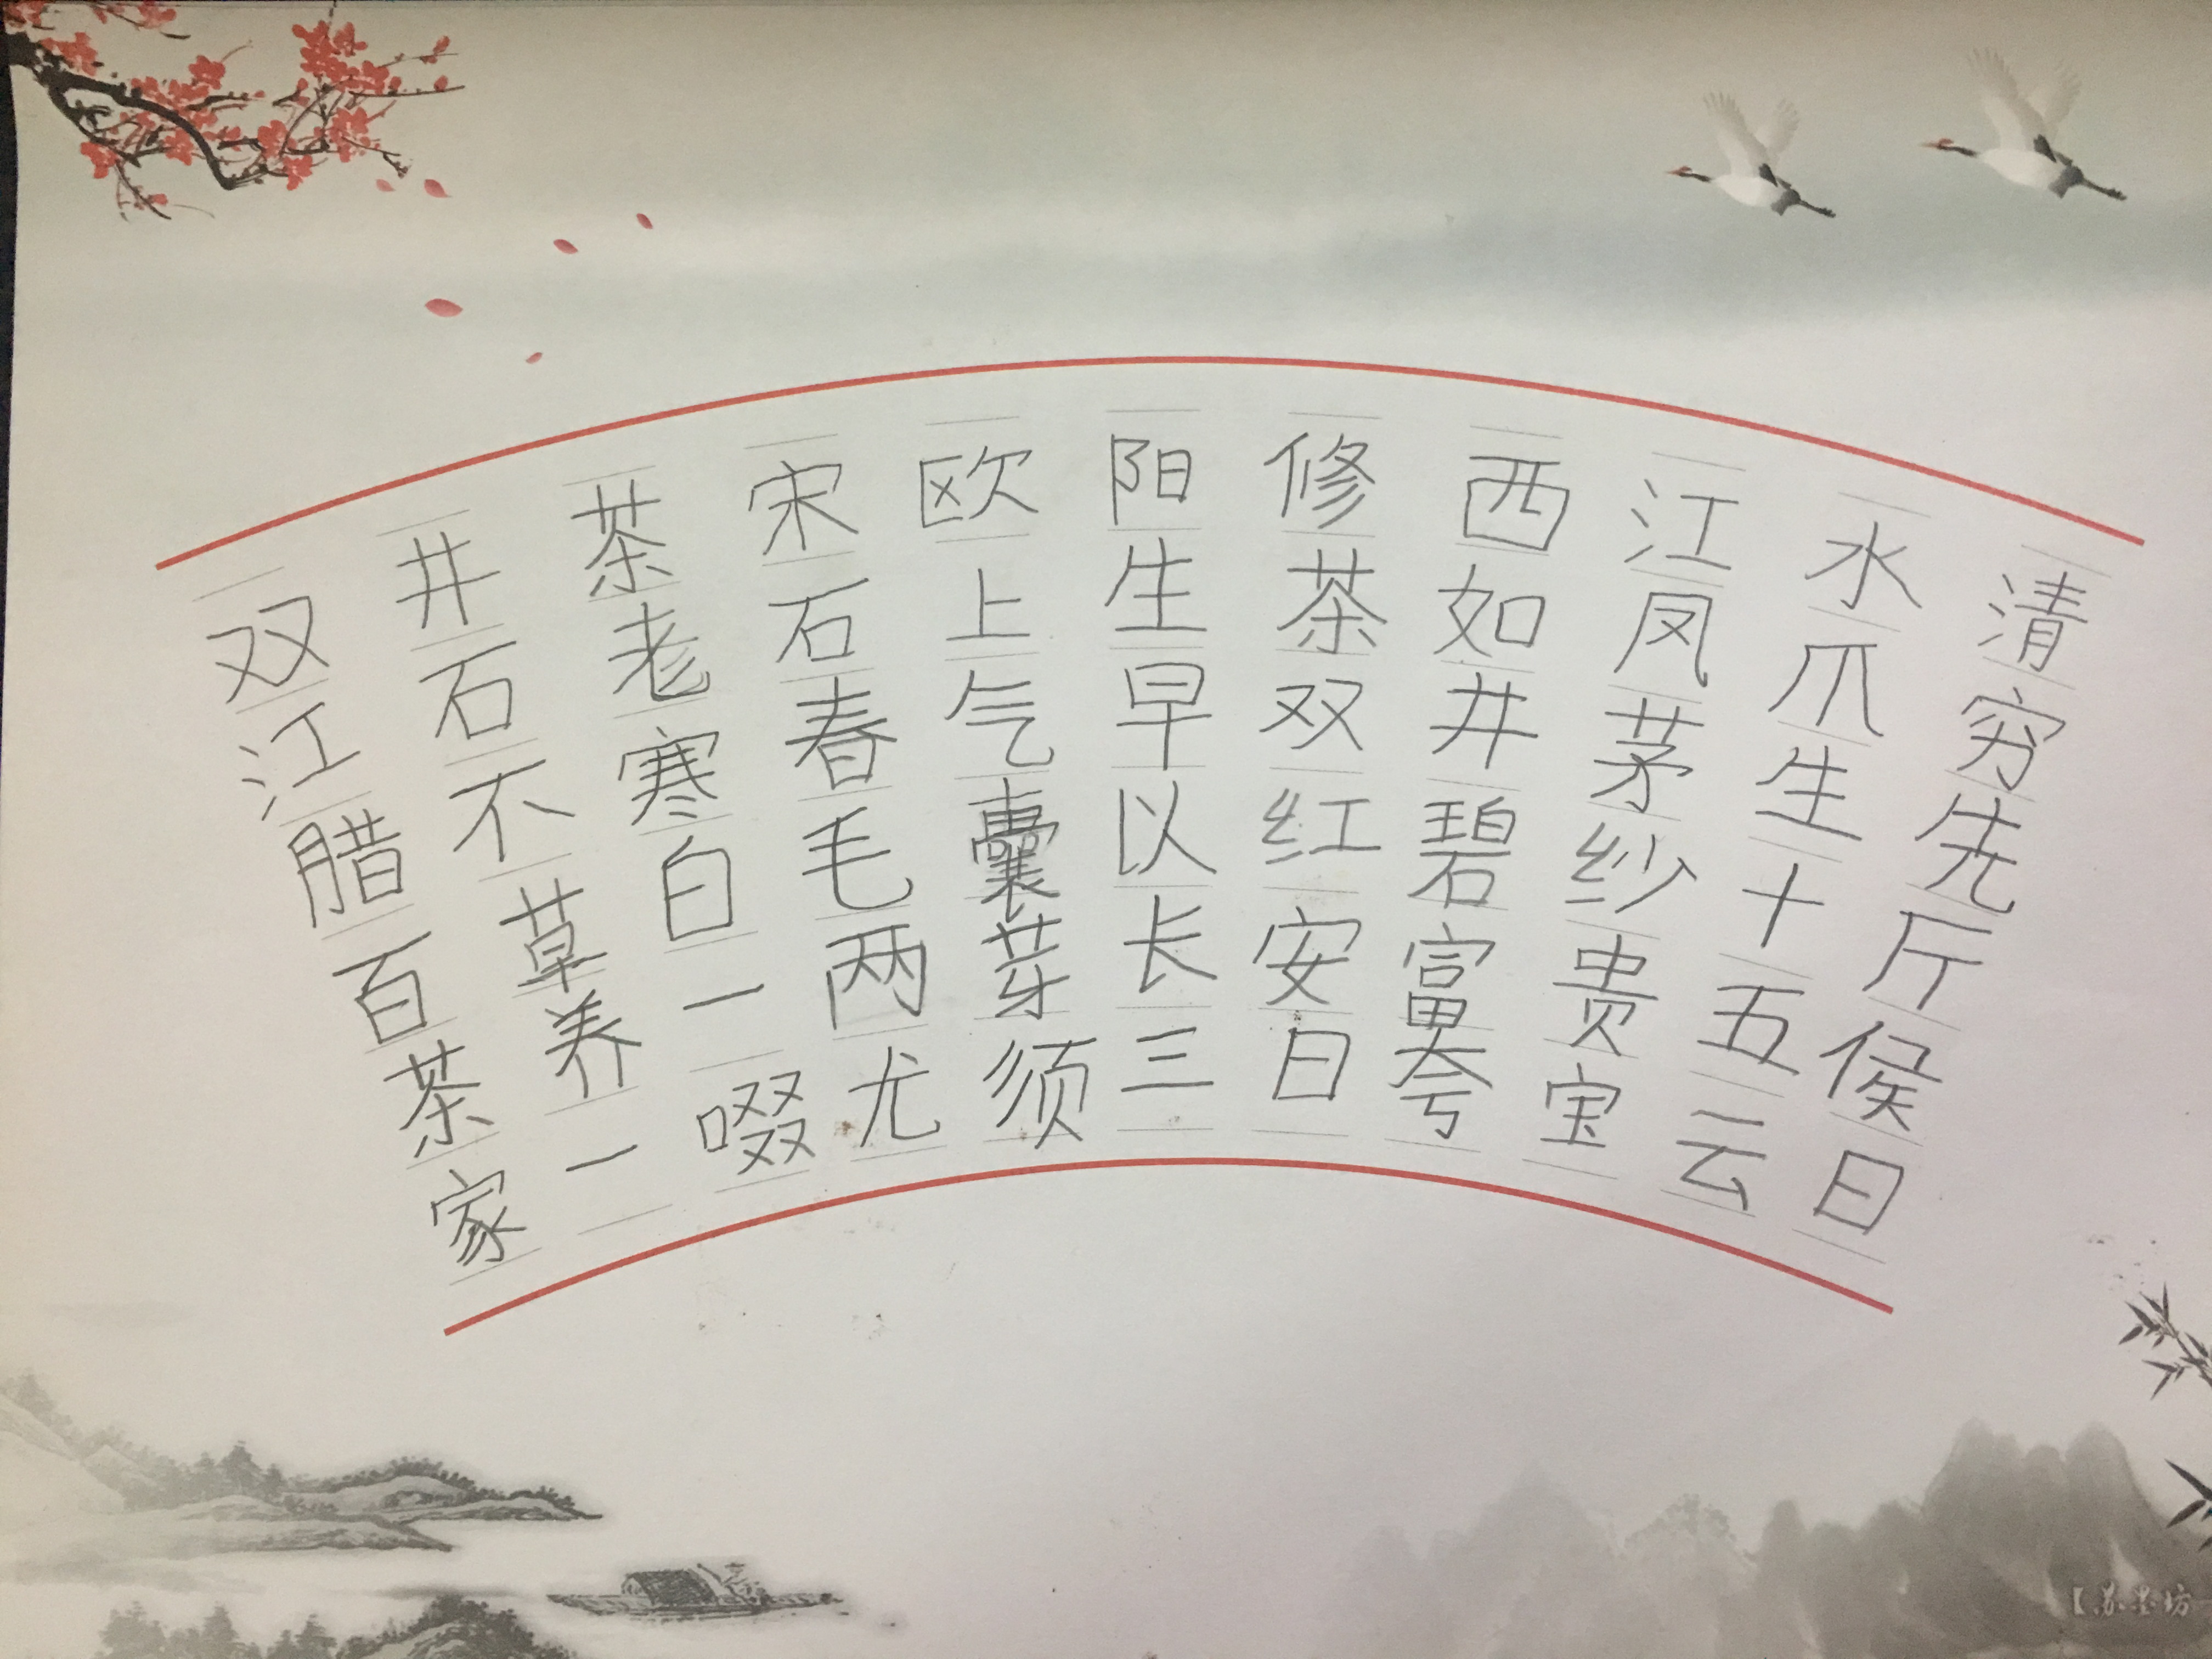 双井茶宋欧阳修西江水清
江石老石上生茶如凤爪穷
腊不寒春气早双井茅生先
百草白毛囊以红碧纱十斤
茶养一两芽长安富贵五侯
家一啜尤须三日夸宝云日
【苏墨坊